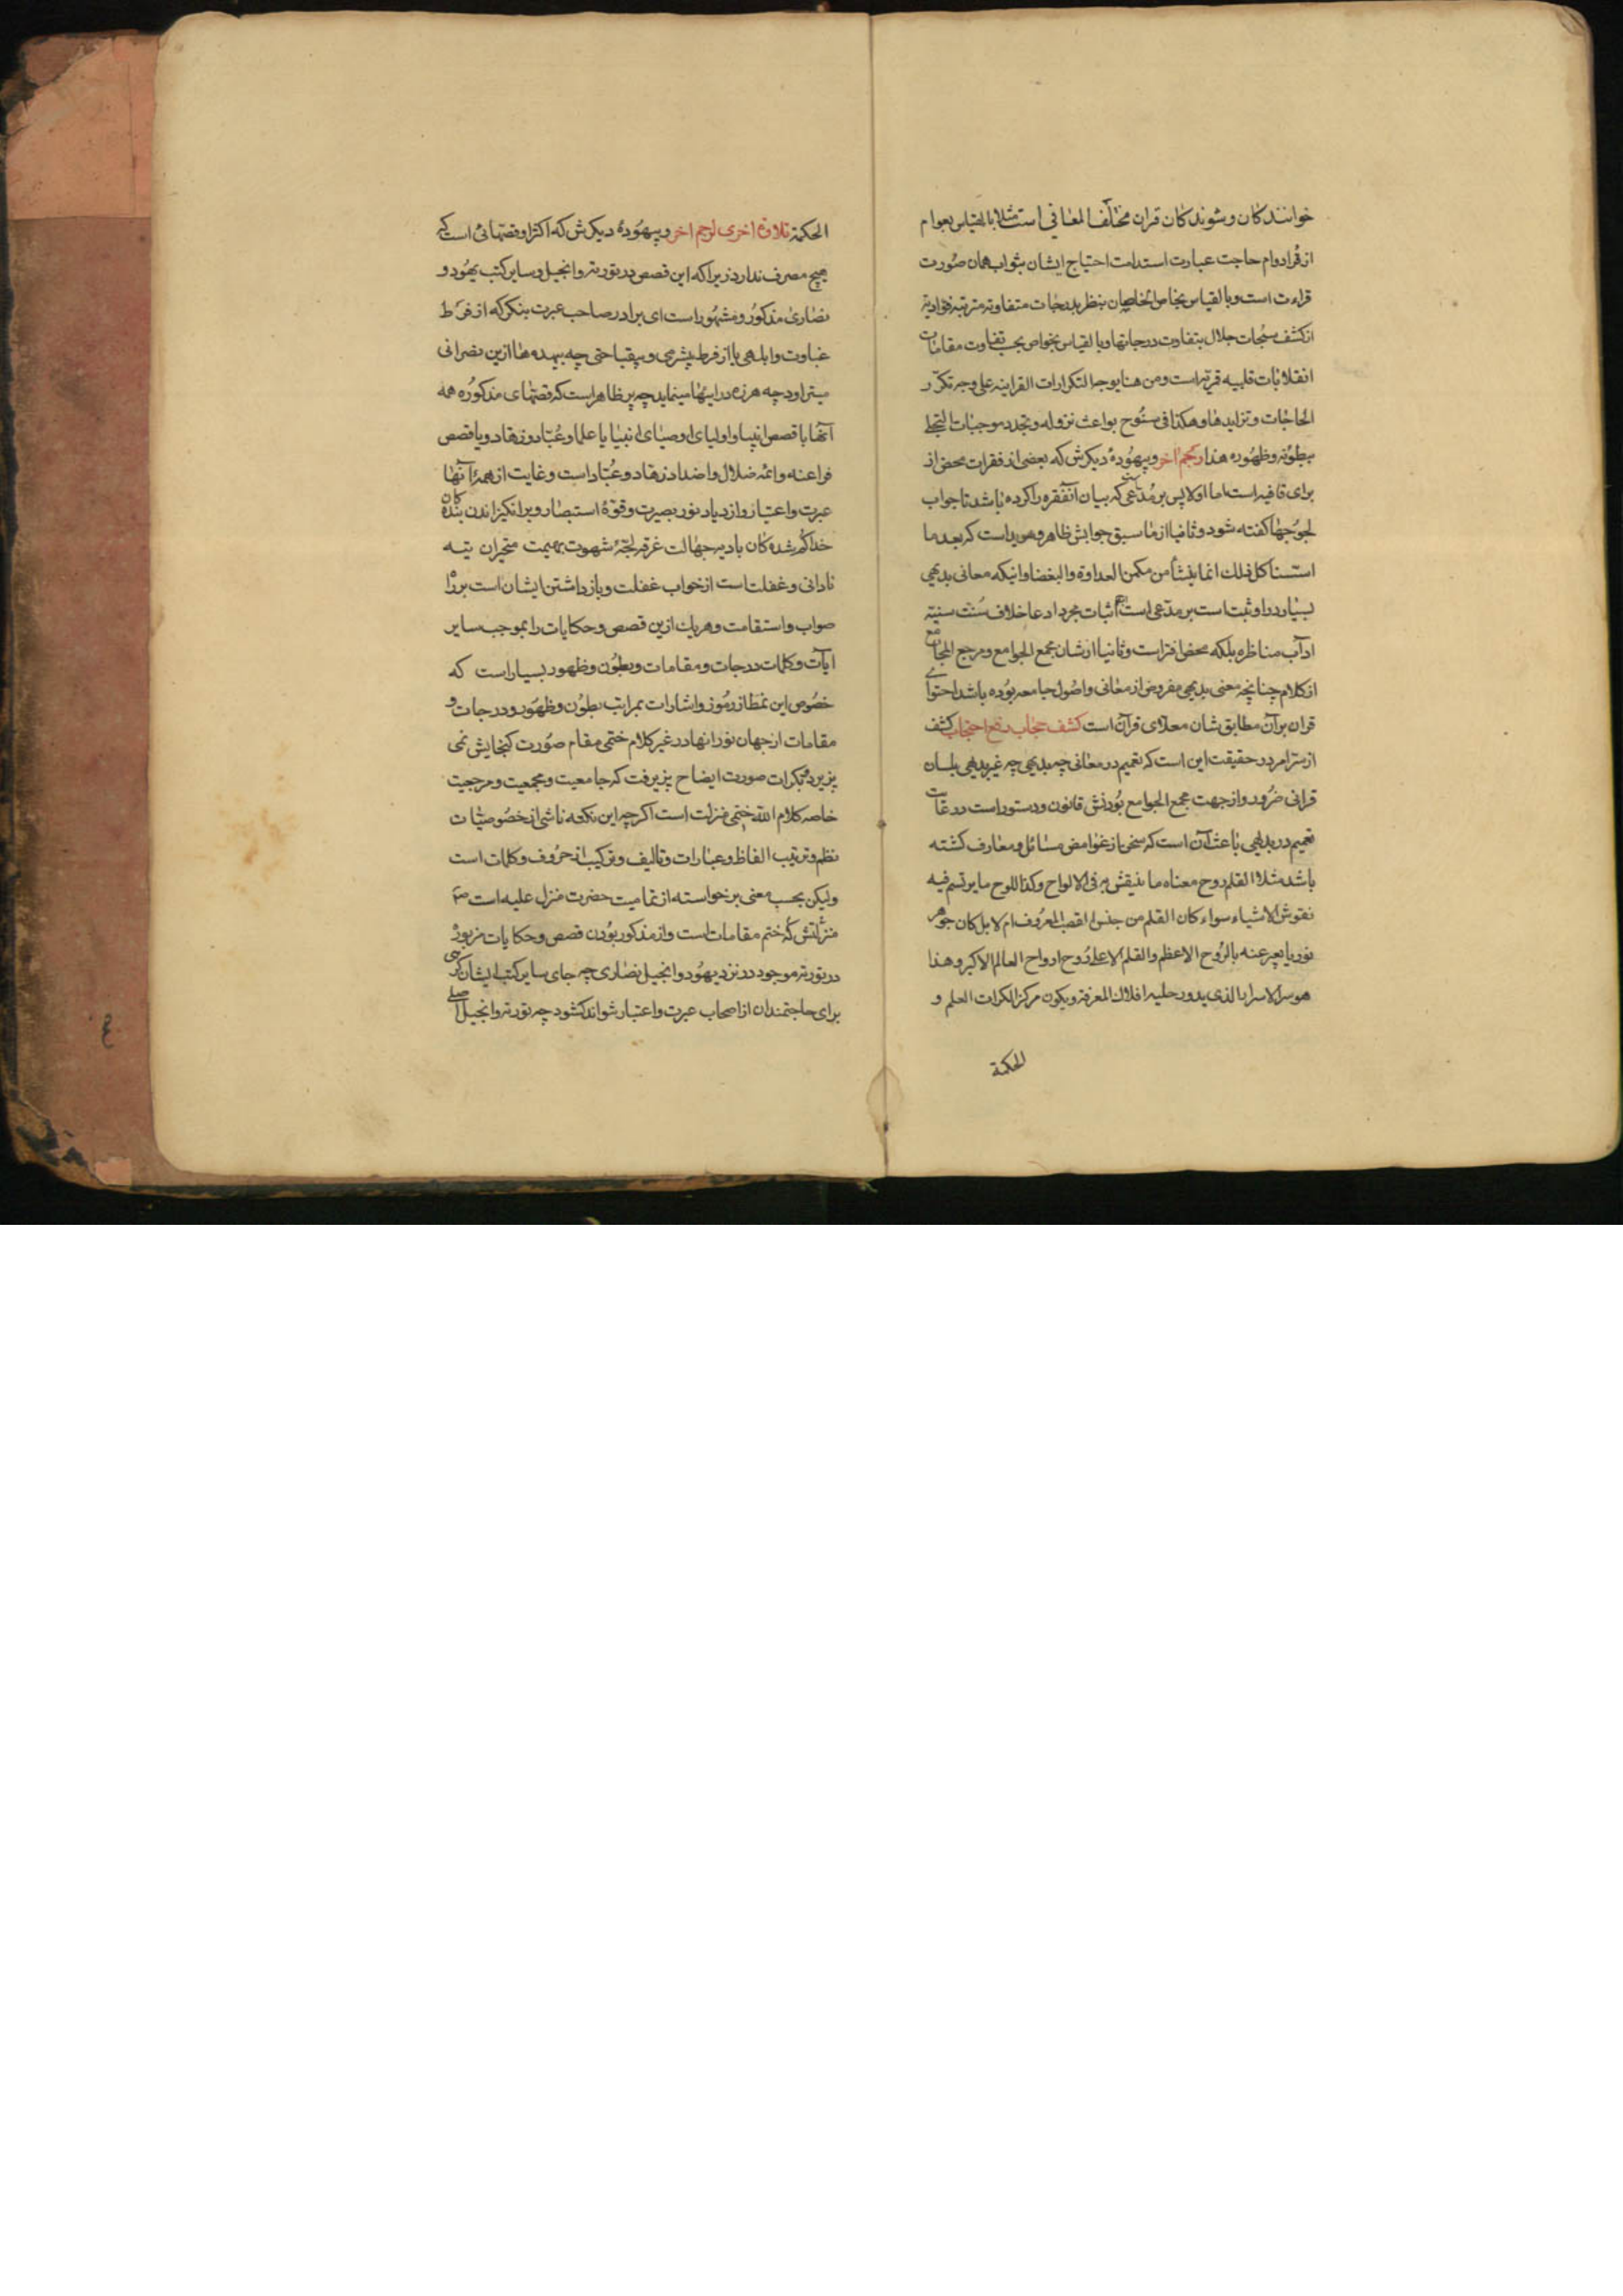 خوانندکان و شنوندکان قران مختلف المعانی است مثلا بالقیاس بعوام
از قرا دوام حاجت عبارت استدامت احتیاج ایشان بثواب همان صورت
قراءت است و بالقیاس بخاص الخاصان بنظر بدرجات متفاوته مترتبه فؤادیه
از کشف سبحات جلال بتفاوت درجاتها و بالقیاس بخواص بحسب تفاوت مقامات
انقلابات قلبیه قربیه است و من هنا یوجه التکرارات القرانیه علی وجه تکرر
الحاجات و تزایدها و هکذا فی سنوح بواعث نزوله و تجدد موجبات التجلی
ببطونه و ظهوره هذا رجم اخر و بیهودهٔ دیکرش که بعضی از فقرات محض از
برای قافیه است اما اولا پس بر مدعی که بیان آنفقره را کرده باشد تا جواب
لجوجها کفته شود و ثانیا از ما سبق جوابش ظاهر و هویداست که بعد ما
اسسنا کل ذلک انما ینشأ من مکمن العداوة والبغضا و اینکه معانی بدیهی
بسیار در او ثبت است بر مدعی است اثبات مجرد ادعا خلاف سنت سنیه
ادآب مناظره بلکه محض افتراست و ثانیا از شان مجمع الجوامع و مرجع المجامع
از کلام چنانچه معنی بدیهی مفروض از معانی و اصول جامعه بوده باشد احتوای
قران بر آن مطابق شان معلای قرآن است کشف حجاب رفع احتجاب کشف
از سر امر در حقیقت این است که تعمیم در معانی چه بدیهی چه غیر بدیهی بلسان
قرانی ضرور و از جهت مجمع الجوامع بودنش قانون و دستور است رعایت
تعمیم در بدیهی باعث آن است که سخن از غوامض مسائل و معارف کشته
باشد مثلا القلم روح معناه ما ینقش به فی الالواح و کذا اللوح ما یرتسم فیه
نقوش الاشیاء سواء کان القلم من جنس القصب المعروف ام لا بل کان جوهر
نوریا یعبر عنه بالروح الاعظم والقلم الاعلی روح ارواح العالم الاکبر و هذا
هو سر الاسرار الذی یدور حلیه افلاک المعرفة و یکون مرکز الکرات العلم و
الحکمة
الحکمة تلاوة اخری لرجم اخر و بیهودهٔ دیکرش که اکثر او قصهائی است که
هیچ مصرف ندارد زیرا که این قصص در توریة و انجیل و سایر کتب یهود و
نصاری مذکور و مشهور است ای برادر صاحب عبرت بنکر که از فرط
غباوت و ابلهی یا از فرط بیشرمی و بیقباحتی چه بیهده ها از این نصرانی
میتراود چه هرزه درائیها مینماید چه پر ظاهر است که قصهای مذکوره همه
آنها با قصص انبیا و اولیای اوصیای انبیا یا علما و عباد و زهاد و یا قصص
فراعنه و ائمه ضلال و اضداد زهاد و عباد است و غایت از همهٔ آنها
عبرت و اعتبار و ازدیاد نور بصیرت و قوهٔ استبصار و برانکیزاندن بندکان
خدا کم شده کان بادیه جهالت غرقه لجهٔ شهوت بهیمیت متحیران تیه
نادانی و غفلت است از خواب غفلت و بازداشتن ایشان است بر راه
صواب و استقامت و هر یک از این قصص و حکایات را بموجب سایر
ایات و کلمات درجات و مقامات و بطون و ظهور بسیار است که
خصوص این نمط از رموز و اشارات بمراتب بطون و ظهور و درجات و
مقامات از جهان نورانها در غیر کلام ختمی مقام صورت کنجایش نمی
پزیرد بکرات صورت ایضاح پزیرفت که جامعیت و مجمعیت و مرجعیت
خاصه کلام الله ختمی منزلت است اکرچه این نکته ناشی از خصوصیات
نظم و ترتیب الفاظ و عبارات و تالیف و ترکیب از حروف و کلمات است
ولیکن بحسب معنی بر خواسته از تمامیت حضرت منزل علیه است
منزلتش که ختم مقامات است و از مذکور بودن قصص و حکایات مزبور
در توریة موجود در نزد یهود و انجیل نصاری چه جای سایر کتب ایشان
برای حاجتمندان از اصحاب عبرت و اعتبار شواند کشود چه توریة و انجیل اصلی
۴